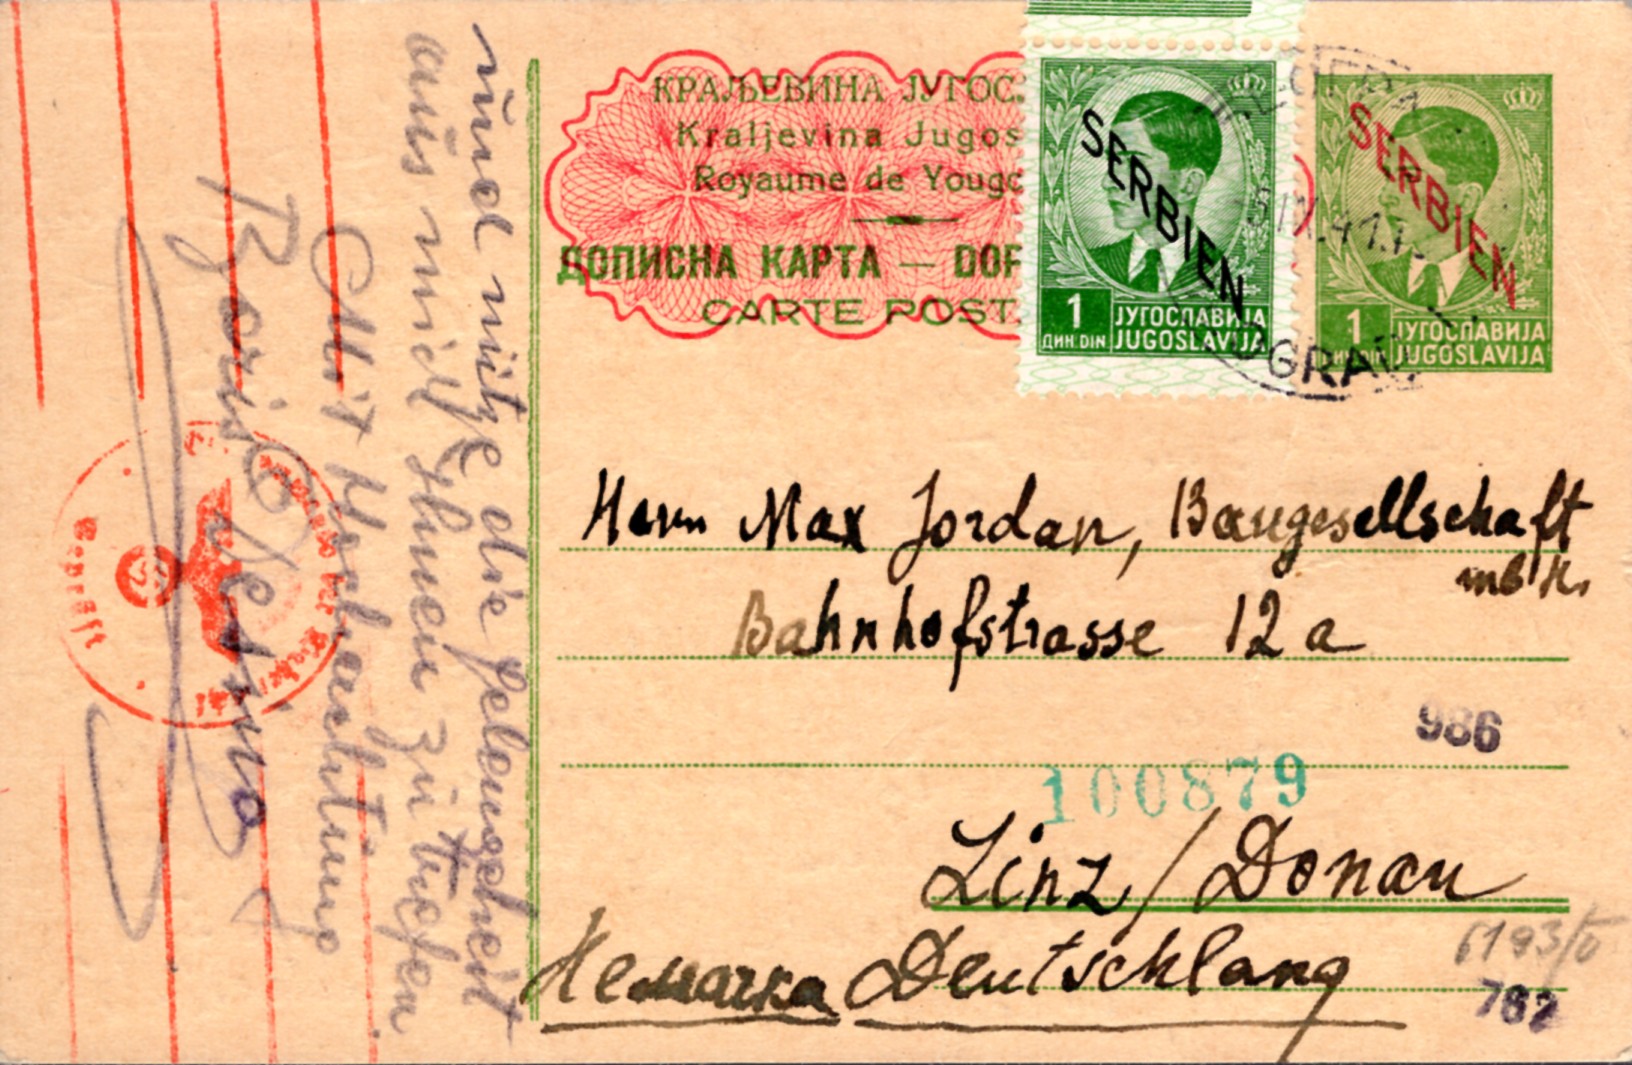 КРАЉЕВИНА ЈУГОС
Kraljevina Jugos
Royaume de Yougo
ДОПИСНА КАРТА — DOP
CARTE POST
SERBIEN
1
ДИН. DIN
ЈУГОСЛАВИЈА
JUGOSLAVIJA
SERBIEN
1
ДИН. DIN
ЈУГОСЛАВИЈА
JUGOSLAVIJA
5.IX.41
OGRAD
Herrn Max Jordan, Baugesellschaft
mbH.
Bahnhofstrasse 12 a
986
100879
Linz / Donau
Немачка Deutschland
6193/
782
und nütze die Gelegenheit
aus mich Ihnen zu
Mit Hochachtung
Boris
Geprüft